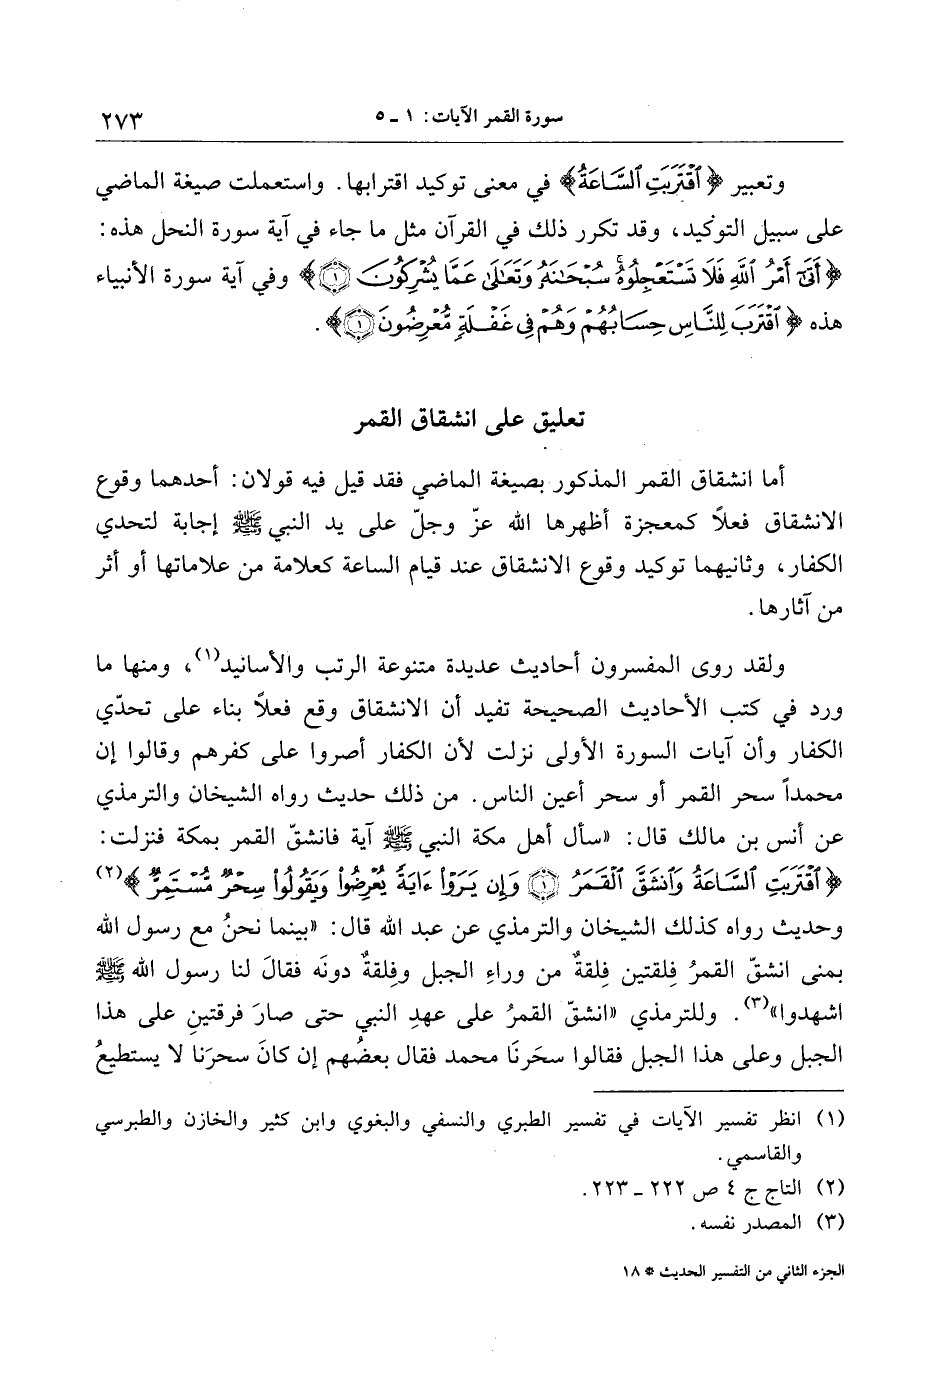 سورة القمر الآيات: ١ ـ ٥ ٢٧٣
وتعبير ﴿ ٱقْتَرَبَتِ ٱلسَّاعَةُ﴾ في معنى توكيد اقترابها. واستعملت صيغة الماضي
على سبيل التوكيد، وقد تكرر ذلك في القرآن مثل ما جاء في آية سورة النحل هذه:
﴿ أَتَىٰٓ أَمْرُ ٱللَّهِ فَلَا تَسْتَعْجِلُوهُ ۚ سُبْحَٰنَهُۥ وَتَعَٰلَىٰ عَمَّا يُشْرِكُونَ ١﴾ وفي آية سورة الأنبياء
هذه ﴿ ٱقْتَرَبَ لِلنَّاسِ حِسَابُهُمْ وَهُمْ فِى غَفْلَةٍ مُّعْرِضُونَ ١﴾.
تعليق على انشقاق القمر
أما انشقاق القمر المذكور بصيغة الماضي فقد قيل فيه قولان: أحدهما وقوع
الانشقاق فعلاً كمعجزة أظهرها الله عزّ وجلّ على يد النبي ﷺ إجابة لتحدي
الكفار، وثانيهما توكيد وقوع الانشقاق عند قيام الساعة كعلامة من علاماتها أو أثر
من آثارها.
ولقد روى المفسرون أحاديث عديدة متنوعة الرتب والأسانيد(١)، ومنها ما
ورد في كتب الأحاديث الصحيحة تفيد أن الانشقاق وقع فعلاً بناء على تحدّي
الكفار وأن آيات السورة الأولى نزلت لأن الكفار أصروا على كفرهم وقالوا إن
محمداً سحر القمر أو سحر أعين الناس. من ذلك حديث رواه الشيخان والترمذي
عن أنس بن مالك قال: «سأل أهل مكة النبي ﷺ آية فانشقّ القمر بمكة فنزلت:
﴿ ٱقْتَرَبَتِ ٱلسَّاعَةُ وَٱنشَقَّ ٱلْقَمَرُ ١ وَإِن يَرَوْا۟ ءَايَةً يُعْرِضُوا۟ وَيَقُولُوا۟ سِحْرٌ مُّسْتَمِرٌّ ﴾(٢)
وحديث رواه كذلك الشيخان والترمذي عن عبد الله قال: «بينما نحنُ مع رسول الله
بمنى انشقّ القمرُ فِلقتين فِلقةٌ من وراءِ الجبل وفِلقةٌ دونَه فقالَ لنا رسول الله ﷺ
اشهدوا»(٣). وللترمذي «انشقّ القمرُ على عهدِ النبي حتى صارَ فرقتينِ على هذا
الجبل وعلى هذا الجبل فقالوا سحَرنَا محمد فقال بعضُهم إن كانَ سحرَنا لا يستطيعُ
(١) انظر تفسير الآيات في تفسير الطبري والنسفي والبغوي وابن كثير والخازن والطبرسي
والقاسمي.
(٢) التاج ج ٤ ص ٢٢٢ ـ ٢٢٣.
(٣) المصدر نفسه.
الجزء الثاني من التفسير الحديث * ١٨